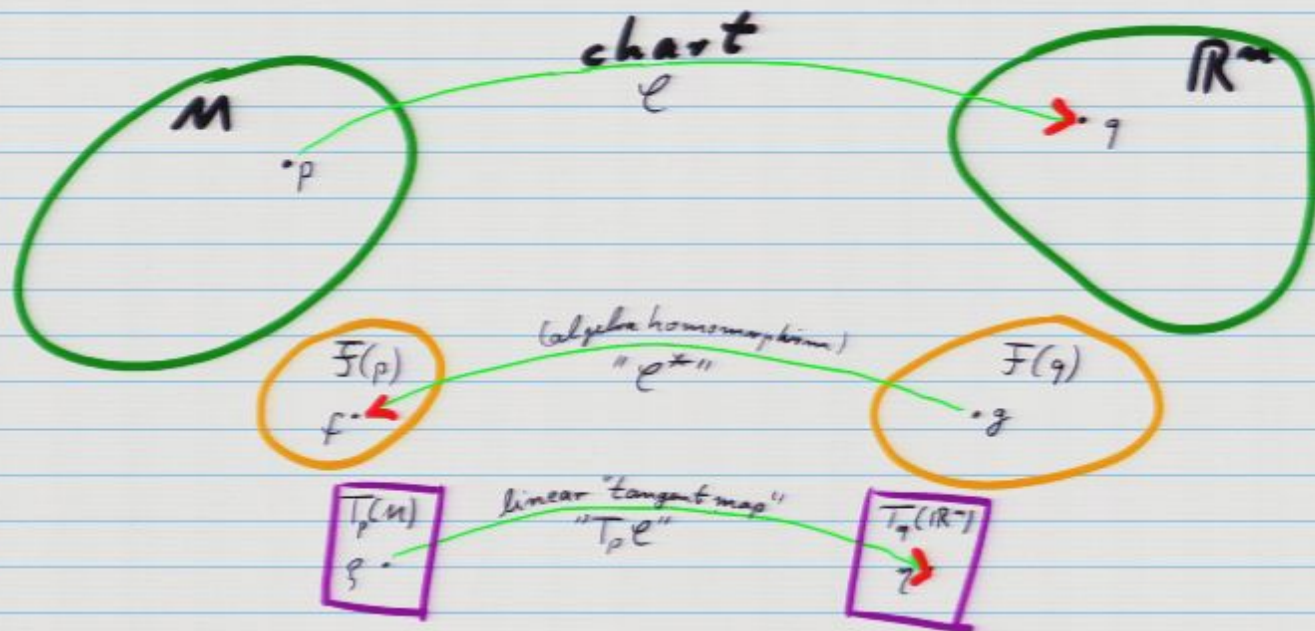 chart
φ
M
ℝⁿ
p
q
(algebra homomorphism)
"φ*"
F(p)
F(q)
f
g
linear "tangent map"
"Tₚφ"
Tₚ(M)
T_q(ℝⁿ)
ξ
η